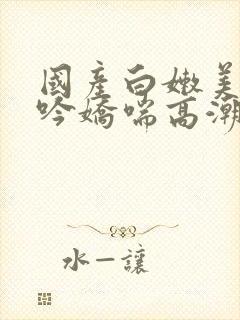 國產白嫩美
吟嬌喘高潮
水一讓